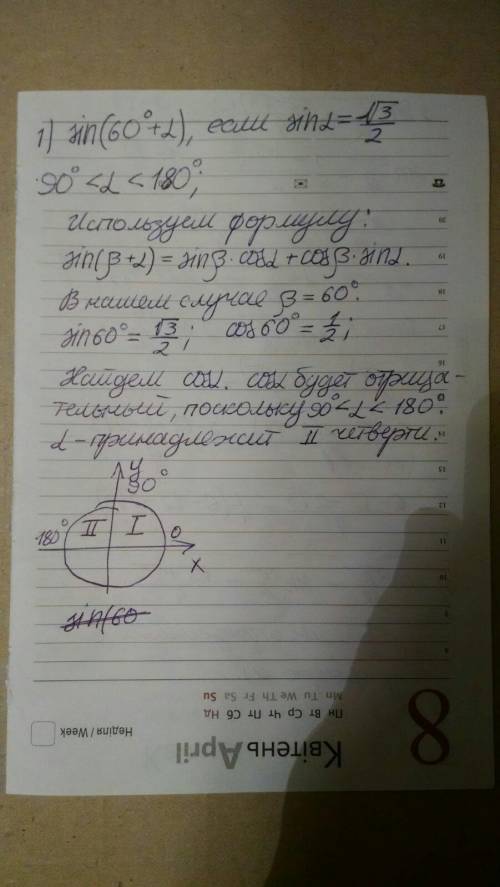 1) sin(60°+α), если sinα=√3/2
90°<α<180°;
Используем формулу:
sin(β+α)=sinβ·cosα+cosβ·sinα.
В нашем случае β=60°.
sin60°=√3/2; cos60°=1/2;
Найдем cosα. cosα будет отрица-
тельный, поскольку 90°<α<180°.
α-принадлежит II четверти.
y
90°
180° II I 0
x
sin(60
8
Mn Tu We Th Fr Sa Su
Пн Вт Ср Чт Пт Сб Нд
Квітень April
Неділя / Week
20
19
18
17
16
15
14
13
12
11
10
9
8